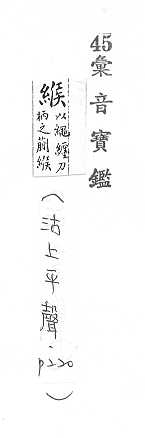 45彙音寶鑑
緱 以繩纏刀
柄之蒯緱
(沽上平聲,
p220)